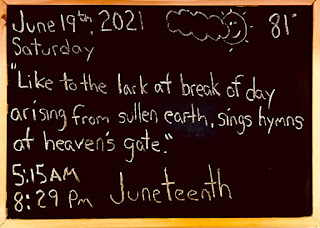 June 19th, 2021 81°
Saturday
"Like to the lark at break of day
arising from sullen earth, sings hymns
at heaven's gate."
5:15 AM
8:29 Pm Juneteenth